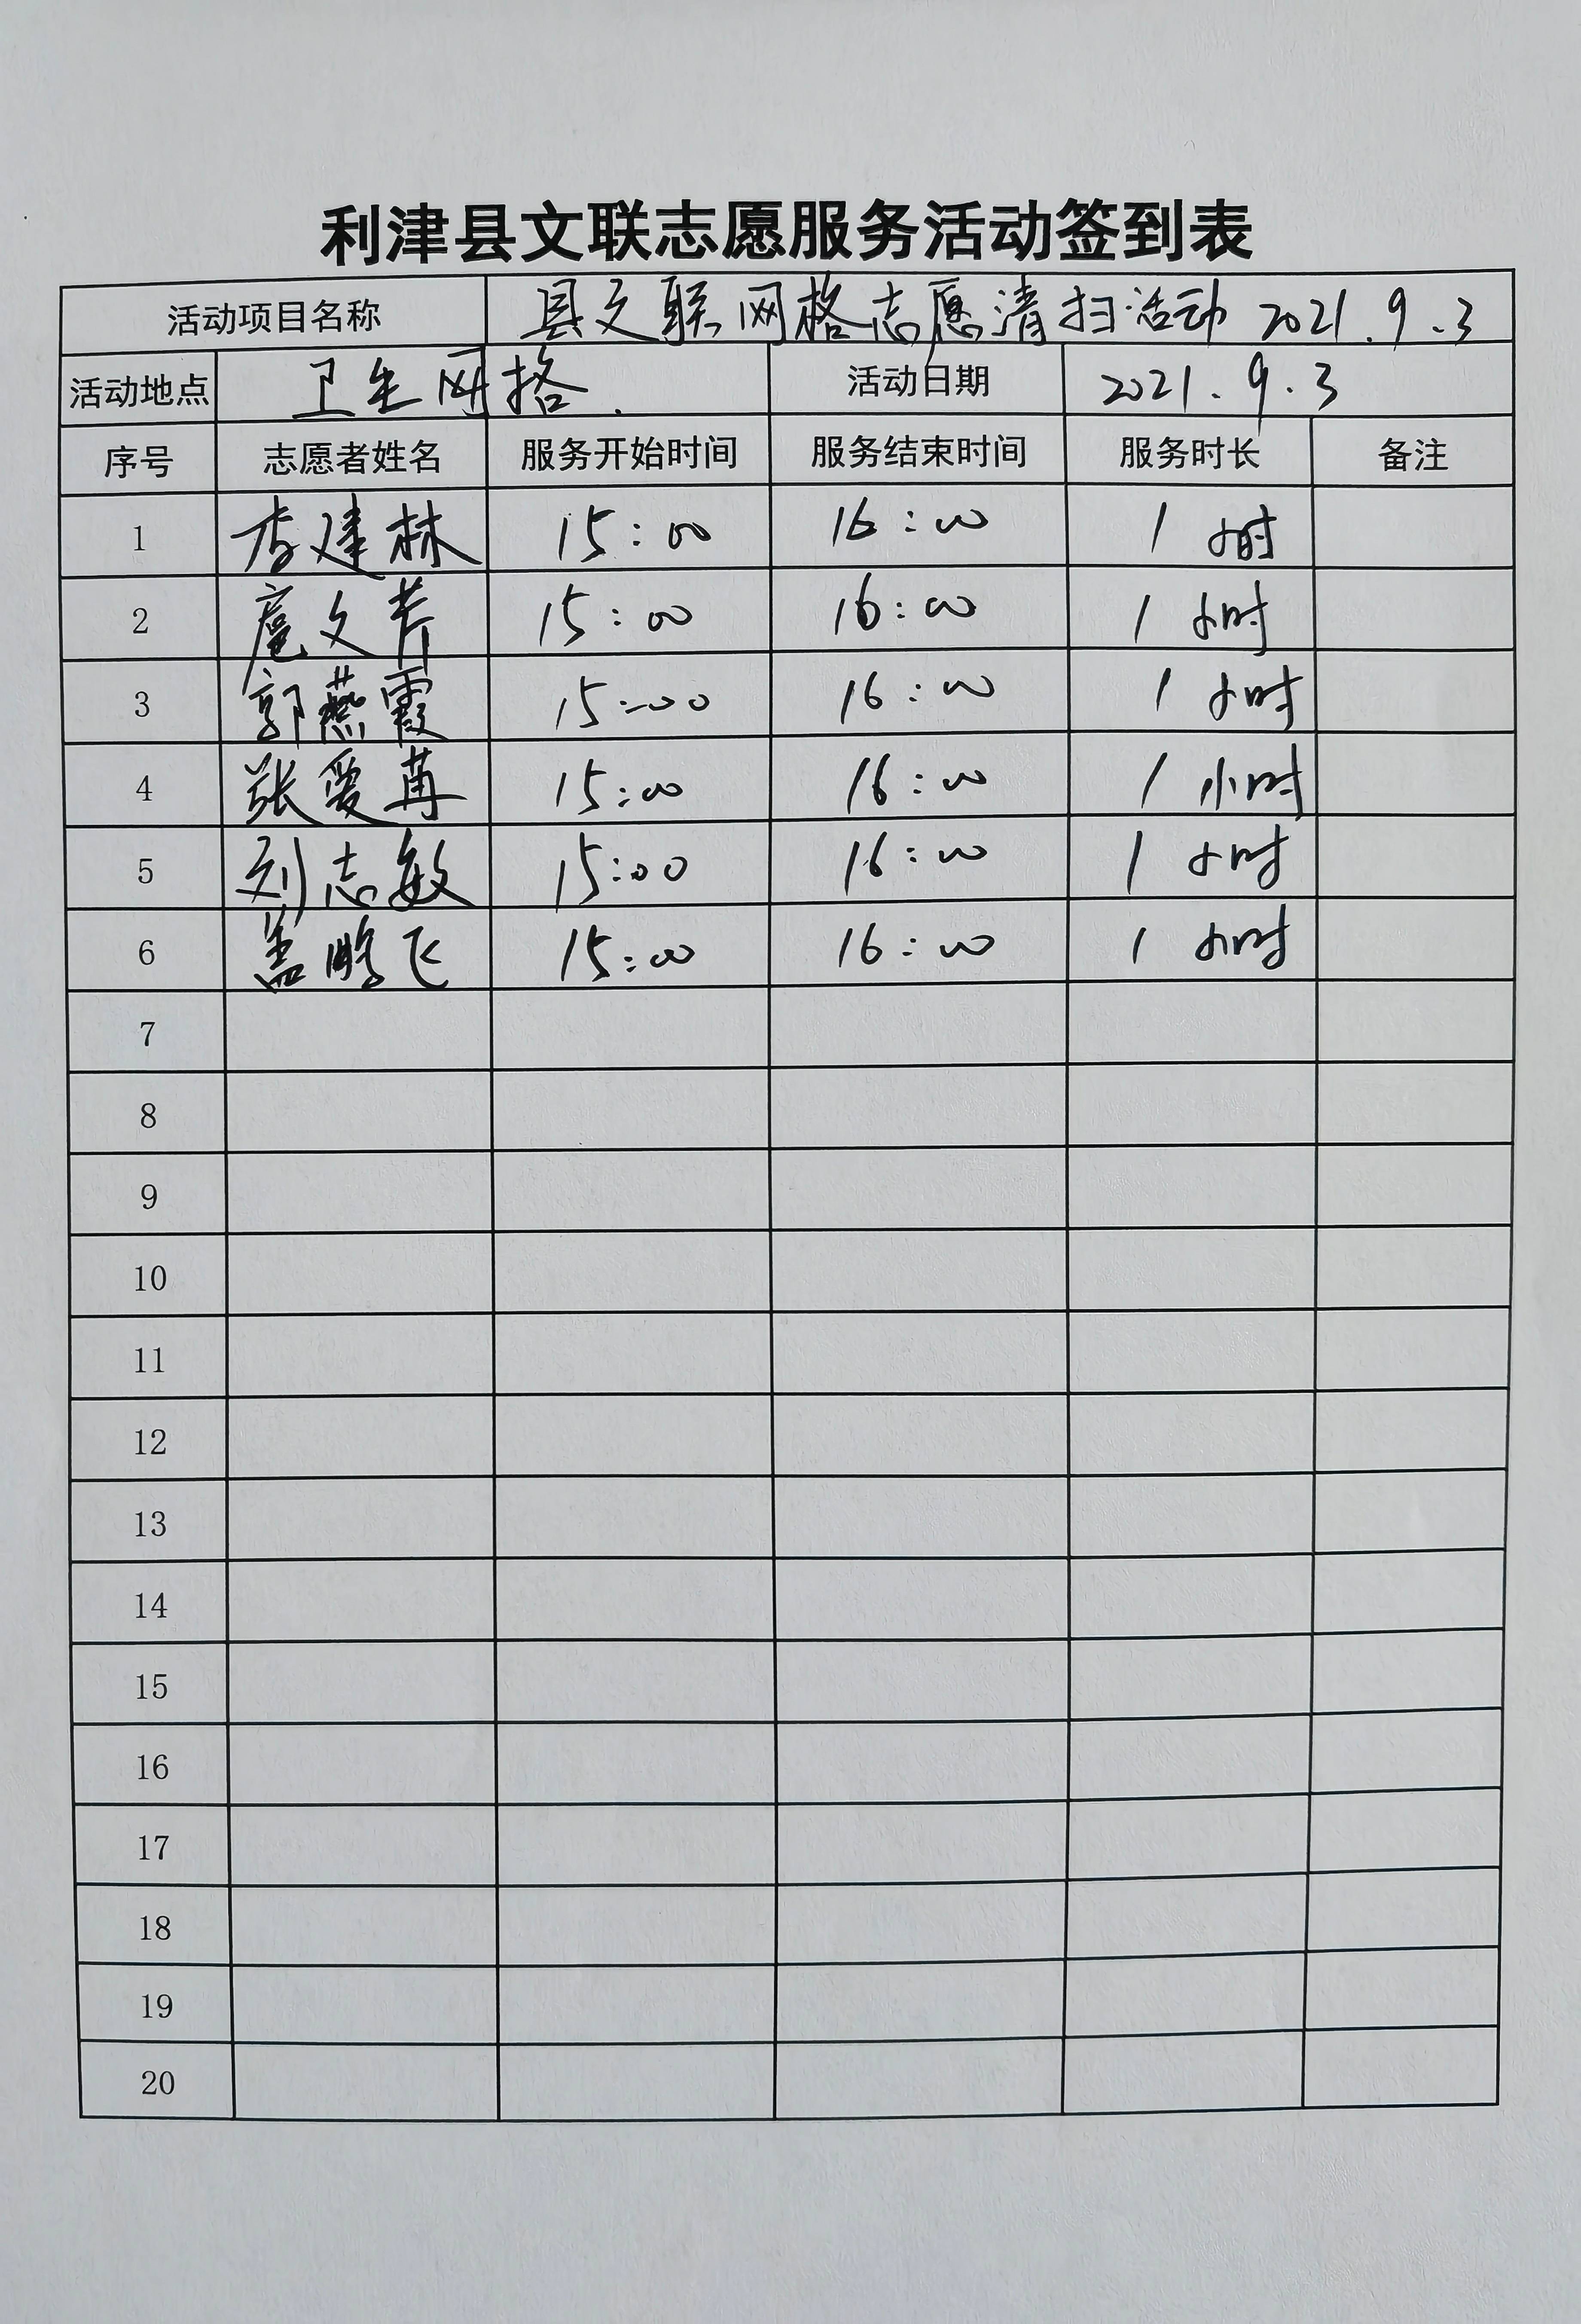 利津县文联志愿服务活动签到表
活动项目名称 县文联网格志愿清扫活动 2021.9.3
活动地点 卫生网格. 活动日期 2021.9.3
序号 志愿者姓名 服务开始时间 服务结束时间 服务时长 备注
1 李建林 15:00 16:00 1小时
2 扈文芹 15:00 16:00 1小时
3 郭燕霞 15:00 16:00 1小时
4 张爱苒 15:00 16:00 1小时
5 刘志敏 15:00 16:00 1小时
6 盖鹏飞 15:00 16:00 1小时
7
8
9
10
11
12
13
14
15
16
17
18
19
20